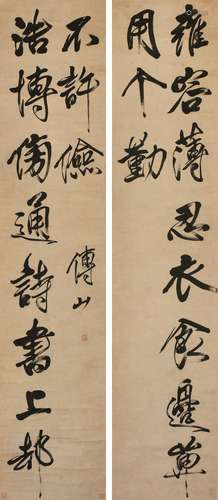 雍容薄忍衣食邊
用个勤
浩博傍通詩書上却
不許儉
傅山